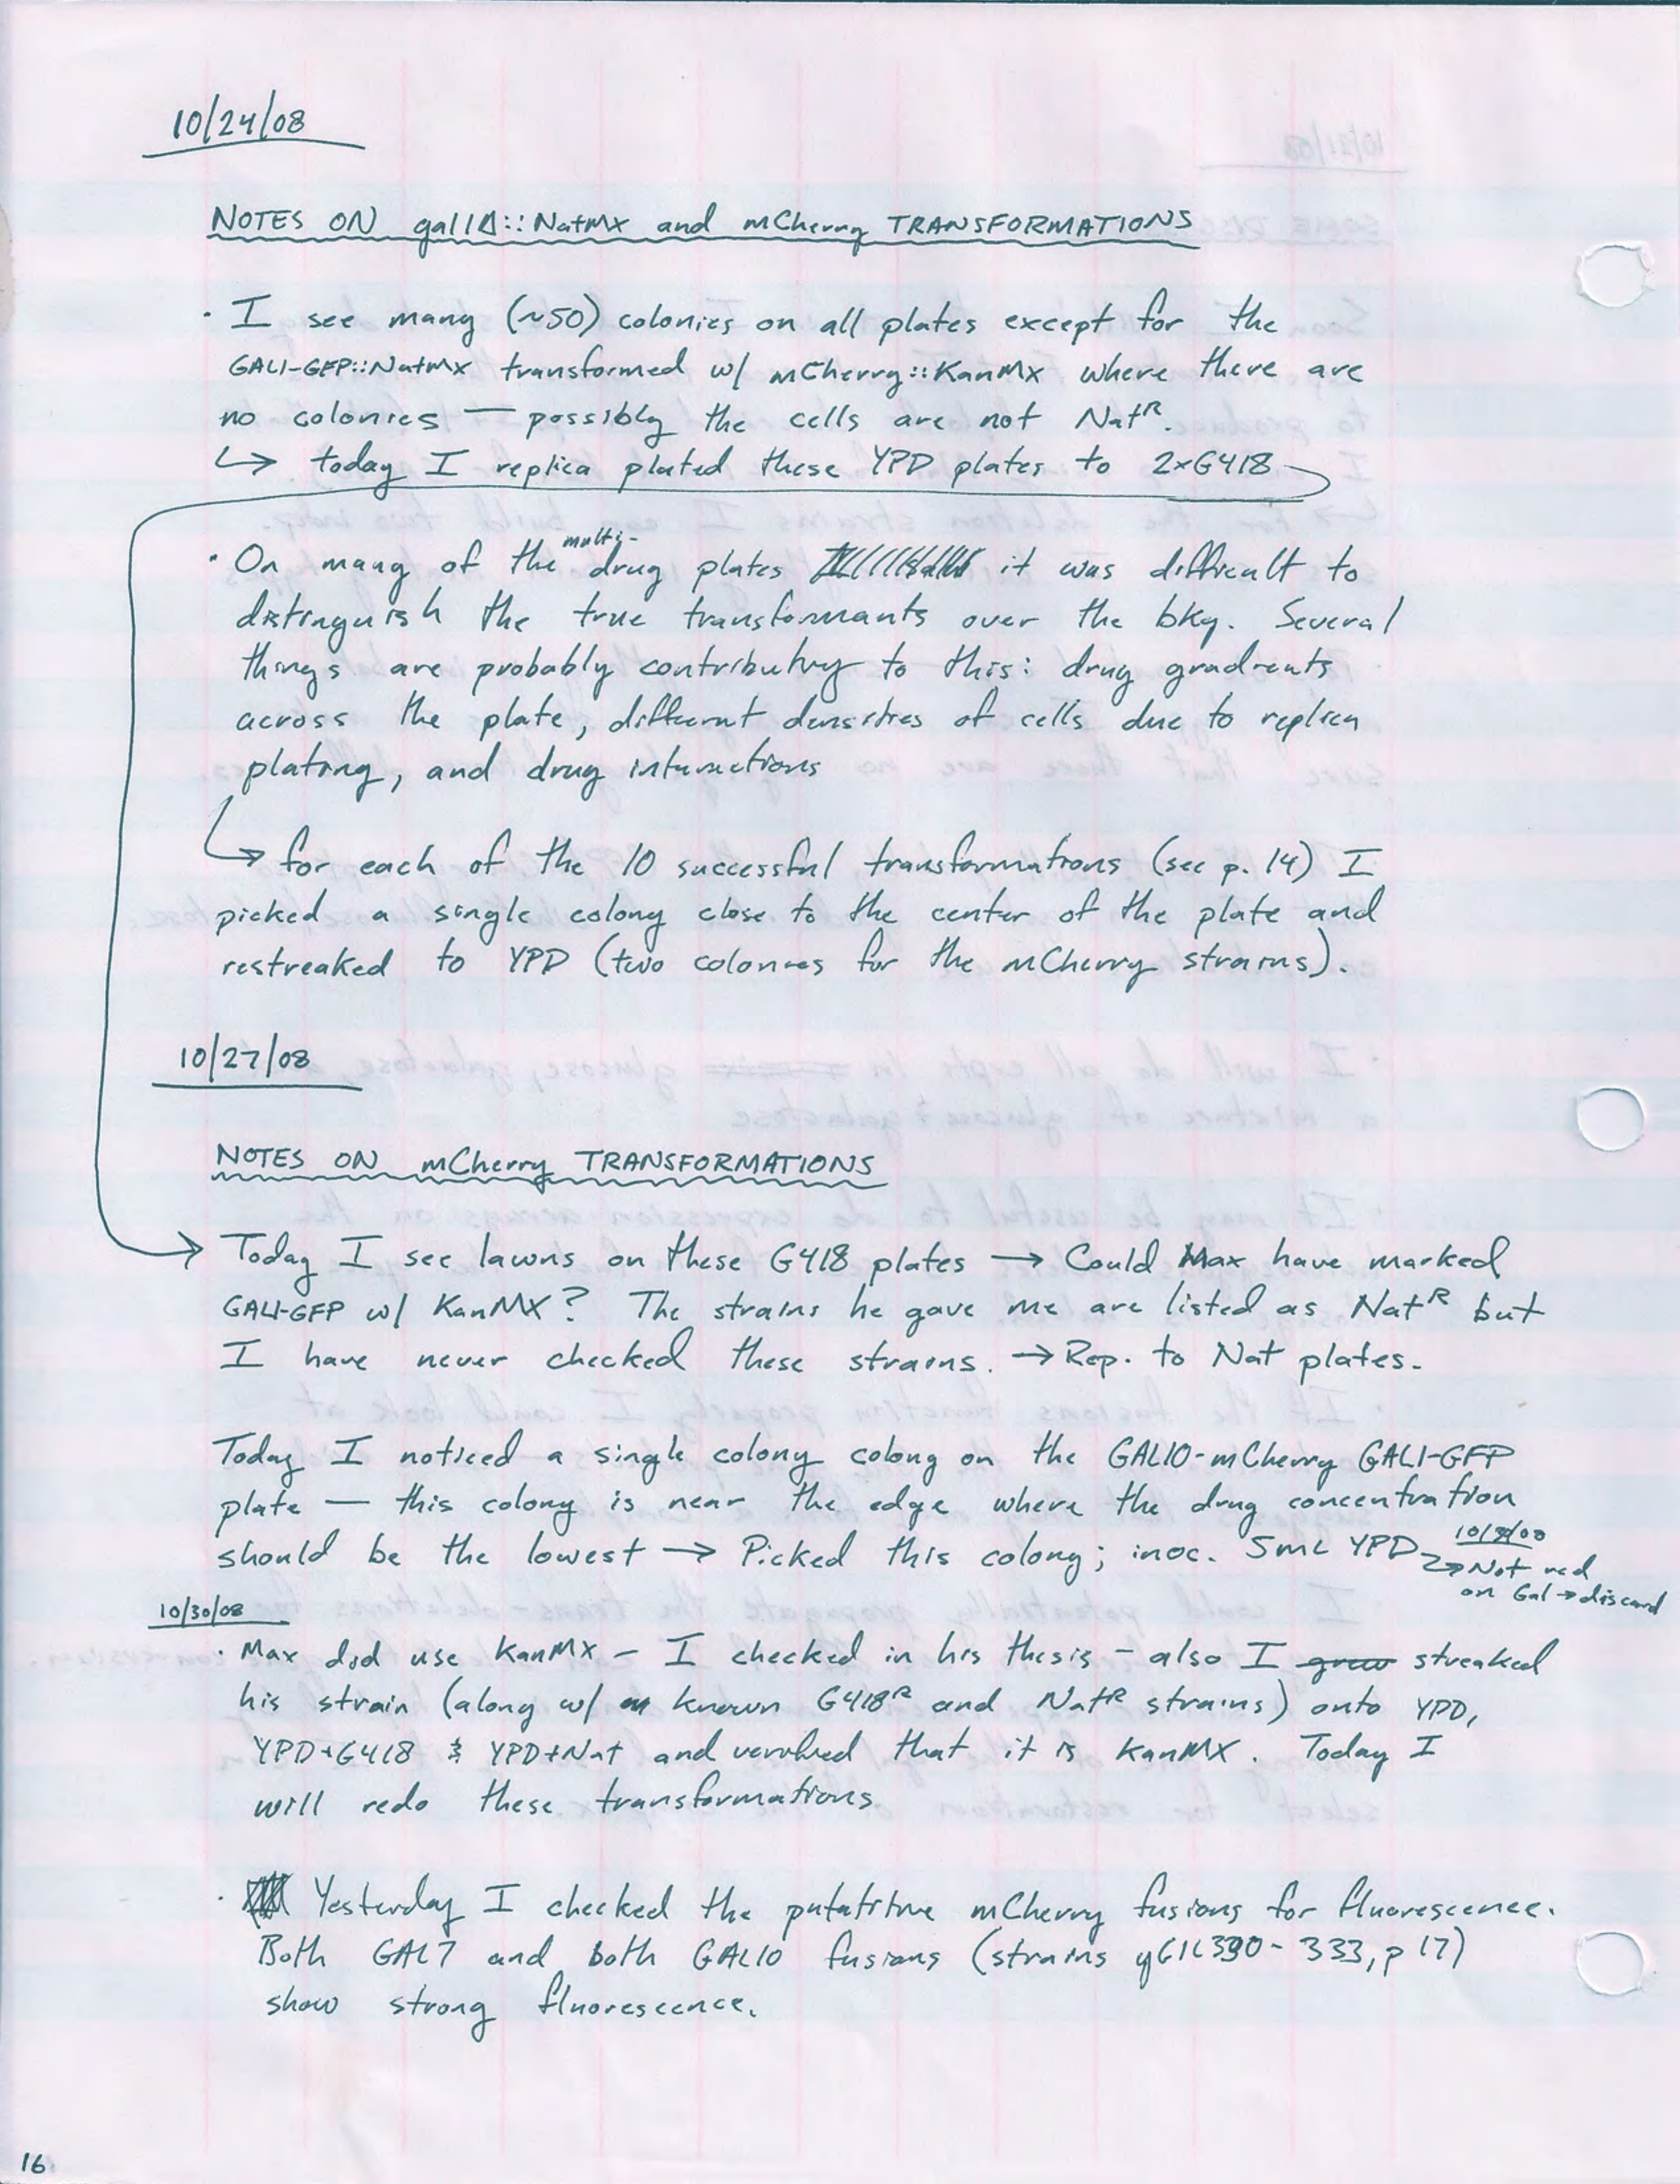 10/24/08
NOTES ON gal1Δ::NatMX and mCherry TRANSFORMATIONS
· I see many (~50) colonies on all plates except for the
GAL1-GFP::NatMX transformed w/ mCherry::KanMX where there are
no colonies — possibly the cells are not Natᴿ.
↳ today I replica plated these YPD plates to 2xG418
multi-
· On many of the drug plates it was difficult to
distinguish the true transformants over the bkg. Several
things are probably contributing to this: drug gradients
across the plate, different densities of cells due to replica
plating, and drug interactions
↳ for each of the 10 successful transformations (see p. 14) I
picked a single colony close to the center of the plate and
restreaked to YPD (two colonies for the mCherry strains).
10/27/08
NOTES ON mCherry TRANSFORMATIONS
→ Today I see lawns on these G418 plates → Could Max have marked
GAL1-GFP w/ KanMX? The strains he gave me are listed as Natᴿ but
I have never checked these strains. → Rep. to Nat plates.
Today I noticed a single colony colony on the GAL10-mCherry GAL1-GFP
plate — this colony is near the edge where the drug concentration
should be the lowest → Picked this colony; inoc. 5mL YPD
→ Not red
on Gal → discard
10/30/08
· Max did use KanMX – I checked in his thesis – also I grew streaked
his strain (along w/ known G418ᴿ and Natᴿ strains) onto YPD,
YPD+G418 & YPD+Nat and verified that it is KanMX. Today I
will redo these transformations
· Yesterday I checked the putatitive mCherry fusions for fluorescence.
Both GAL7 and both GAL10 fusions (strains yGIL330-333, p 17)
show strong fluorescence.
16